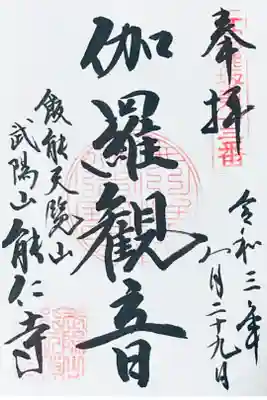 奉拝
令和三年八月二十九日
伽羅観音
飯能天覧山
武陽山能仁寺